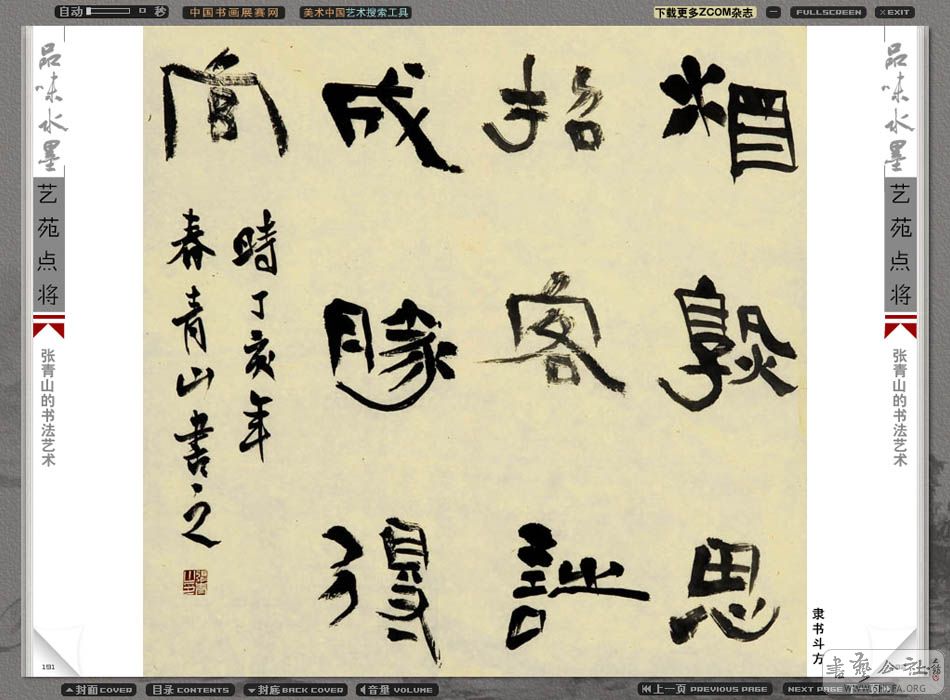 自动 秒 中国书画展赛网 美术中国艺术搜索工具 下载更多ZCOM杂志 FULLSCREEN EXIT
品味水墨
艺苑点将
张青山的书法艺术
敦思
招客
成勝
時丁亥年
春青山書之
隶书斗方
品味水墨
艺苑点将
张青山的书法艺术
封面 COVER 目录 CONTENTS 封底 BACK COVER 音量 VOLUME 上一页 PREVIOUS PAGE NEXT PAGE